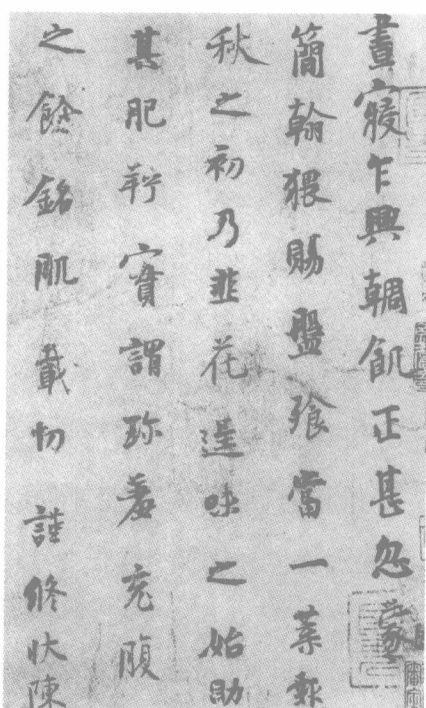 晝寢乍興輖飢正甚忽蒙
簡翰猥賜盤飱當一葉報
秋之初乃韭花逞味之始助
其肥羜寔謂珍羞充腹
之餘銘肌載切謹修狀陳